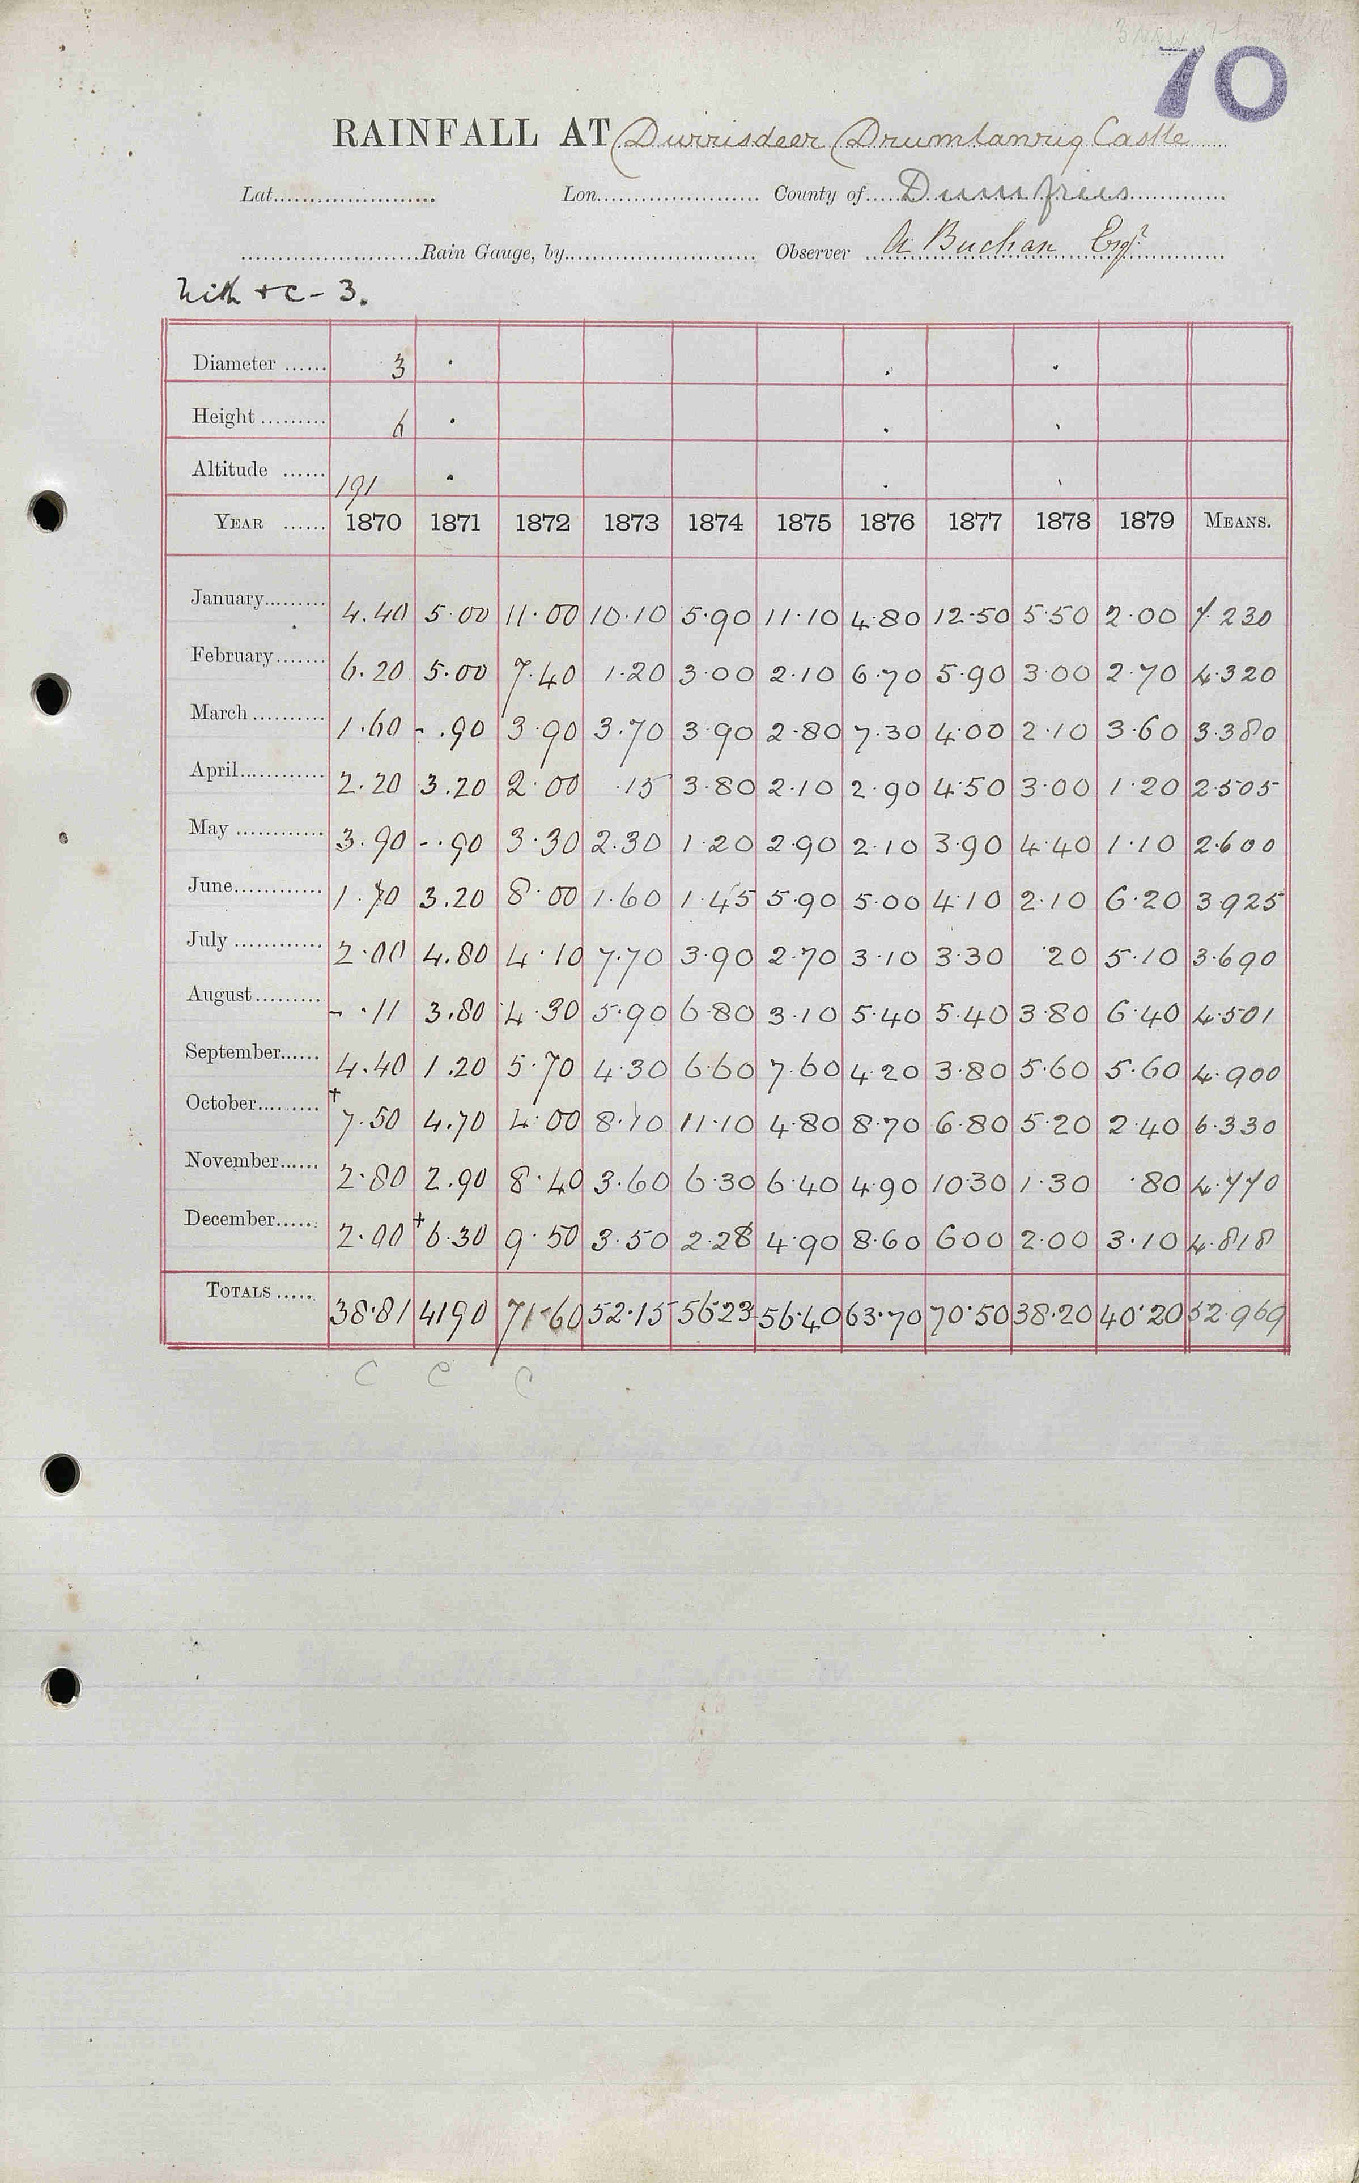 70
RAINFALL AT (Durrisdeer (Drumlanrig Castle
Lat. Lon. County of Dumfries
Rain Gauge, by Observer A Buchan Esqr
Nith + C - 3.
Diameter 3 . . .
Height 6 . . .
Altitude 191 . . .
YEAR 1870 1871 1872 1873 1874 1875 1876 1877 1878 1879 MEANS.
January 4.40 5.00 11.00 10.10 5.90 11.10 4.80 12.50 5.50 2.00 7.230
February 6.20 5.00 7.40 1.20 3.00 2.10 6.70 5.90 3.00 2.70 4.320
March 1.60 - .90 3.90 3.70 3.90 2.80 7.30 4.00 2.10 3.60 3.380
April 2.20 3.20 2.00 .15 3.80 2.10 2.90 4.50 3.00 1.20 2.505
May 3.90 - .90 3.30 2.30 1.20 2.90 2.10 3.90 4.40 1.10 2.600
June 1.70 3.20 8.00 1.60 1.45 5.90 5.00 4.10 2.10 6.20 3.925
July 2.00 4.80 4.10 7.70 3.90 2.70 3.10 3.30 .20 5.10 3.690
August - .11 3.80 4.30 5.90 6.80 3.10 5.40 5.40 3.80 6.40 4.501
September 4.40 1.20 5.70 4.30 6.60 7.60 4.20 3.80 5.60 5.60 4.900
October †7.50 4.70 4.00 8.10 11.10 4.80 8.70 6.80 5.20 2.40 6.330
November 2.80 2.90 8.40 3.60 6.30 6.40 4.90 10.30 1.30 .80 4.770
December 2.00 †6.30 9.50 3.50 2.28 4.90 8.60 6.00 2.00 3.10 4.818
TOTALS 38.81 41.90 71.60 52.15 56.23 56.40 63.70 70.50 38.20 40.20 52.969
C C C